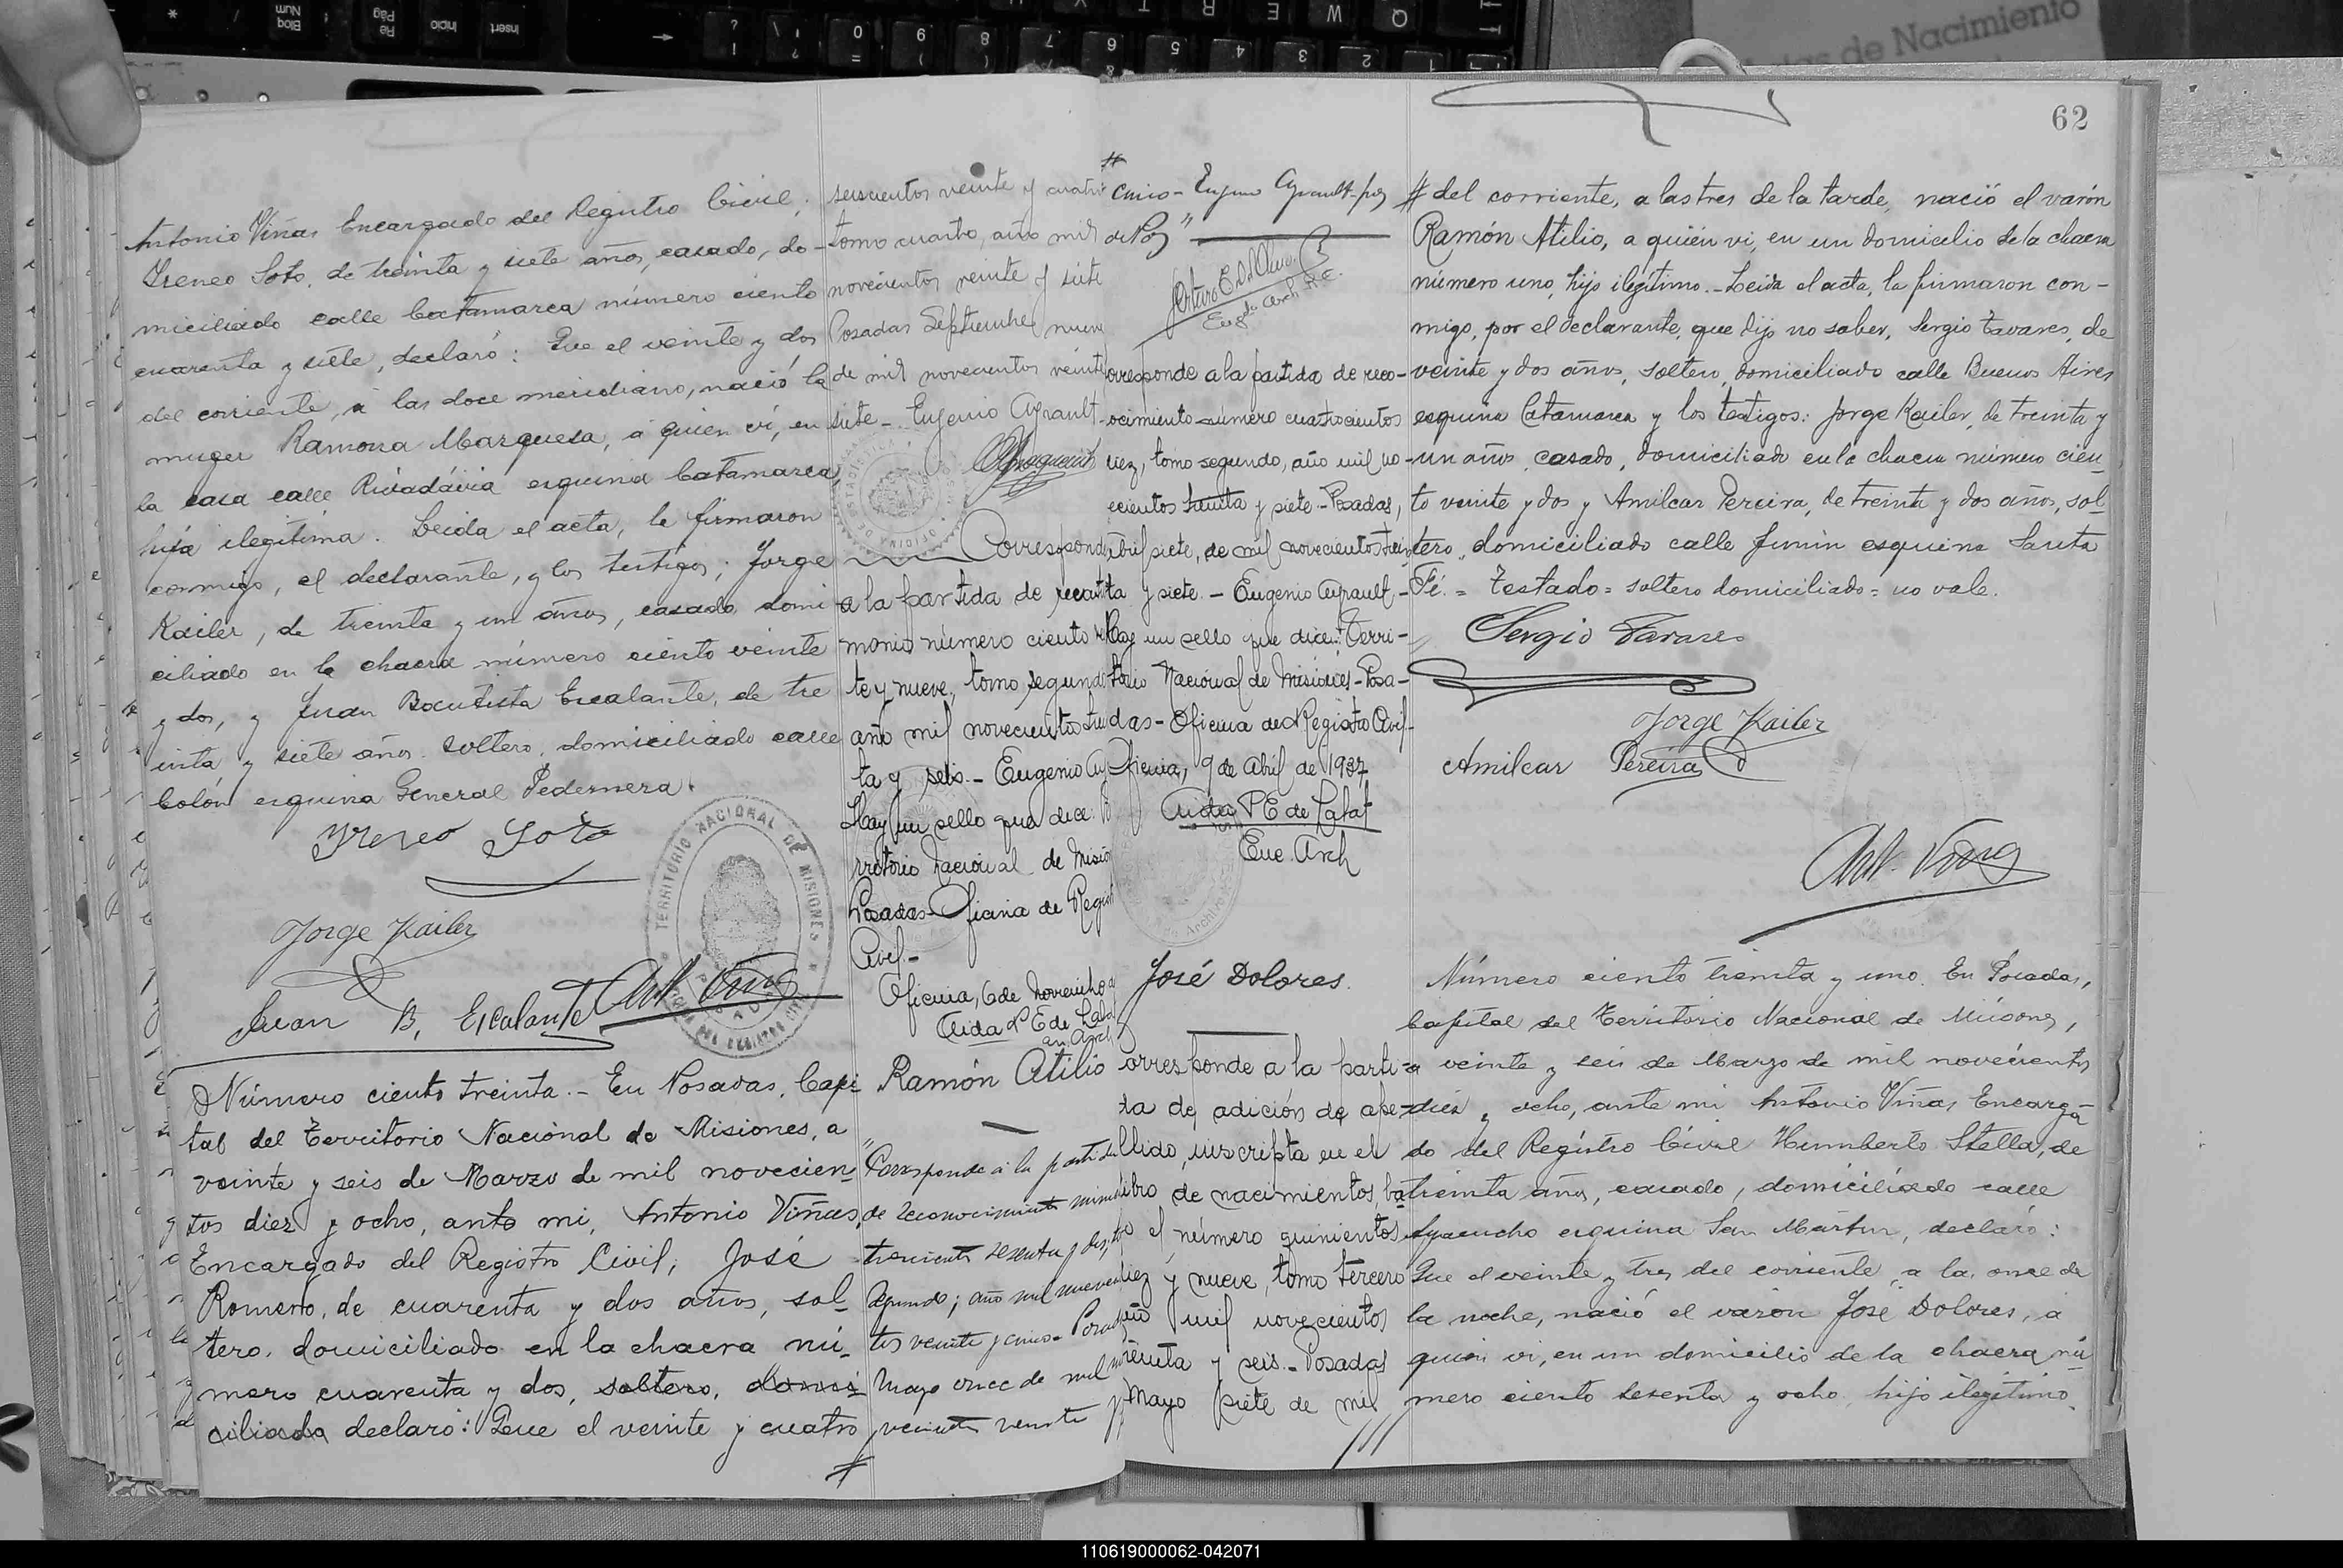 62
Antonio Viñas Encargado del Registro Civil,
Ireneo Soto, de treinta y siete años, casado, do-
miciliado calle Catamarca número ciento
cuarenta y siete, declaró: Que el veinte y dos
del corriente, a las doce meridiano, nació la
muger Ramona Marquesa, a quien ví, en
la casa calle Rivadávia esquina Catamarca,
hija ilegítima. Leida el acta, la firmaron
conmigo, el declarante, y los testigos; Jorge
Kailer, de treinta y un años, casado domi-
ciliado en la chacra número ciento veinte
y dos, y Juan Bautista Escalante, de tre
inta y siete años. soltero, domiciliado calle
Colón esquina General Pedernera.
Ireneo Soto
Jorge Kailer
Juan B. Escalante
Ant. Viñas
TERRITORIO NACIONAL DE MISIONES
seiscientos veinte y cuatro
tomo cuarto, año mil
novecientos veinte y siete
Posadas Septiembre nueve
de mil novecientos veinte
siete - Eugenio Ayrault
Corresponde
a la partida de
monio número ciento
te y nueve, tomo segundo
año mil novecientos
ta y seis.- Eugenio
Hay un sello que dice:
rritorio Nacional de Misio
Posadas-Oficina de Regist
Civil.-
Oficina, 6 de Noviembre
Aida P E de
Número ciento treinta.- En Posadas, Capi-
tal del Territorio Nacional de Misiones, a
veinte y seis de Marzo de mil novecien-
tos diez y ocho, ante mi, Antonio Viñas,
Encargado del Registro Civil, José
Romero, de cuarenta y dos años, sol-
tero, domiciliado en la chacra nú-
mero cuarenta y dos, soltero, domi-
ciliado declaró: Que el veinte y cuatro
#
Ramón Atilio
"Corresponde a la partida
de reconocimiento número
trescientos sesenta y dos, to
segundo; año mil novecien
tos veinte y cinco - Posadas
Mayo once de mil no
vecientos veinte
#
cinco - Eugenio Ayrault - juez
de Paz"
Corresponde a la partida de reco-
nocimiento número cuatrocientos
diez, tomo segundo, año mil no-
vecientos treinta y siete.- Posadas,
Abril siete, de mil novecientos trein-
ta y siete.- Eugenio Ayrault.-
Hay un sello que dice: Terri-
torio Nacional de Misiones - Posa-
das - Oficina de Registro Civil.-
Oficina, 9 de Abril de 1937
Aida P E de
Enc. Arch
José Dolores.
Corresponde a la parti-
da de adición de ape-
llido, inscripta en el
libro de nacimientos, ba
jo el número quinientos
diez y nueve, tomo tercero
año mil novecientos
treinta y seis.- Posadas
Mayo siete de mil
///
# del corriente, a las tres de la tarde, nació el varón
Ramón Atilio, a quién vi, en un domicilio de la chacra
número uno, hijo ilegítimo.- Leida el acta, la firmaron con-
migo, por el declarante, que dijo no saber, Sergio Tavares, de
veinte y dos años, soltero, domiciliado calle Buenos Aires
esquina Catamarca y los testigos: Jorge Kailer, de treinta y
un años, casado, domiciliado en la chacra número cien-
to veinte y dos y Amilcar Pereira, de treinta y dos años, sol-
tero, domiciliado calle Junín esquina Santa
Fé. = Testado = soltero domiciliado = no vale.
Sergio Tavares
Jorge Kailer
Amilcar Pereira
Ant. Viñas
Número ciento treinta y uno. En Posadas,
Capital del Territorio Nacional de Misiones,
a veinte y seis de Marzo de mil novecientos
diez y ocho, ante mi Antonio Viñas Encarga-
do del Registro Civil Humberto Stella, de
treinta años, casado, domiciliado calle
Ayacucho esquina San Martin, declaró:
Que el veinte y tres del corriente, a la once de
la noche, nació el varón José Dolores, a
quien vi, en un domicilio de la chacra nú-
mero ciento sesenta y ocho, hijo ilegítimo.
110619000062-042071